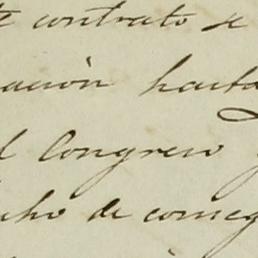 te contrato se
ación hasta
l Congreso
cho de comeg